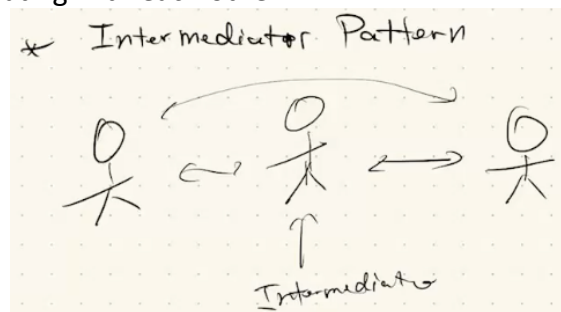 * Intermediator Pattern
Intermediator